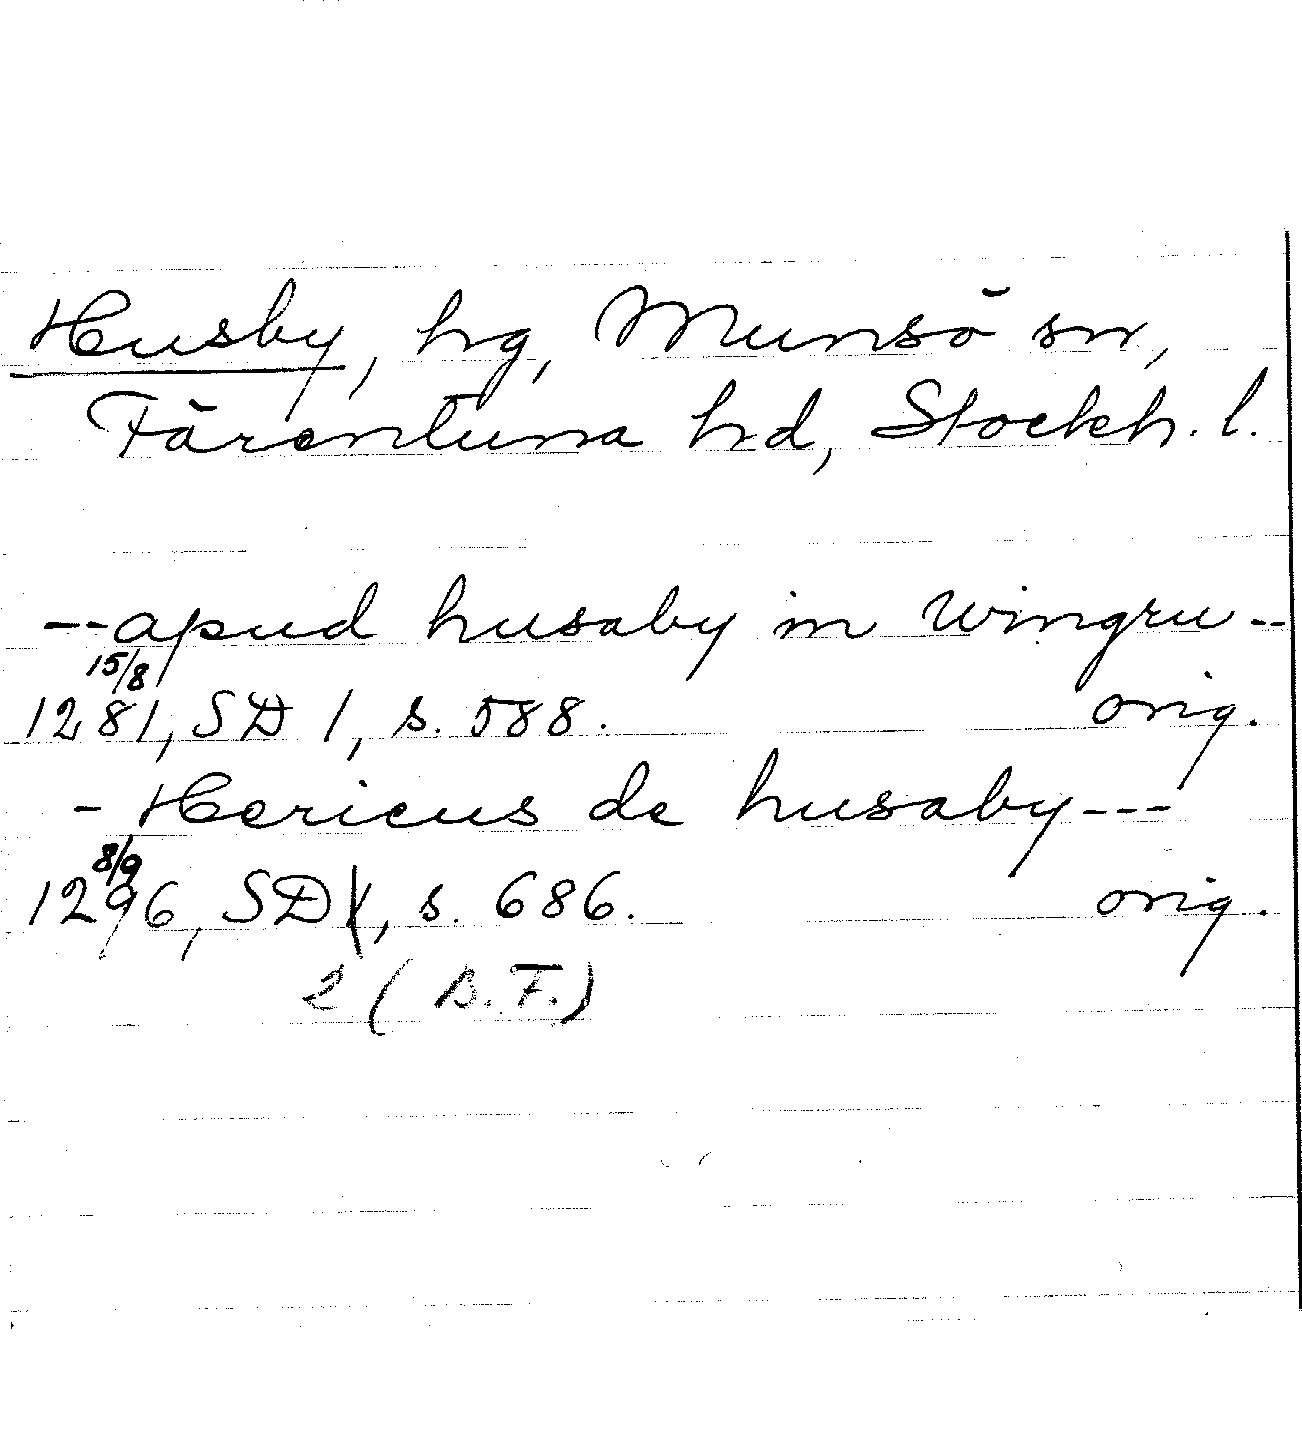 Husby, hg, Munsö sn,
Färentuna hd, Stockh. l.
--apud husaby in wingru--
15/8
1281, SD 1, s. 588. orig.
- Hericus de husaby---
8/9
1296, SD 1, s. 686. orig.
2 (B.F.)